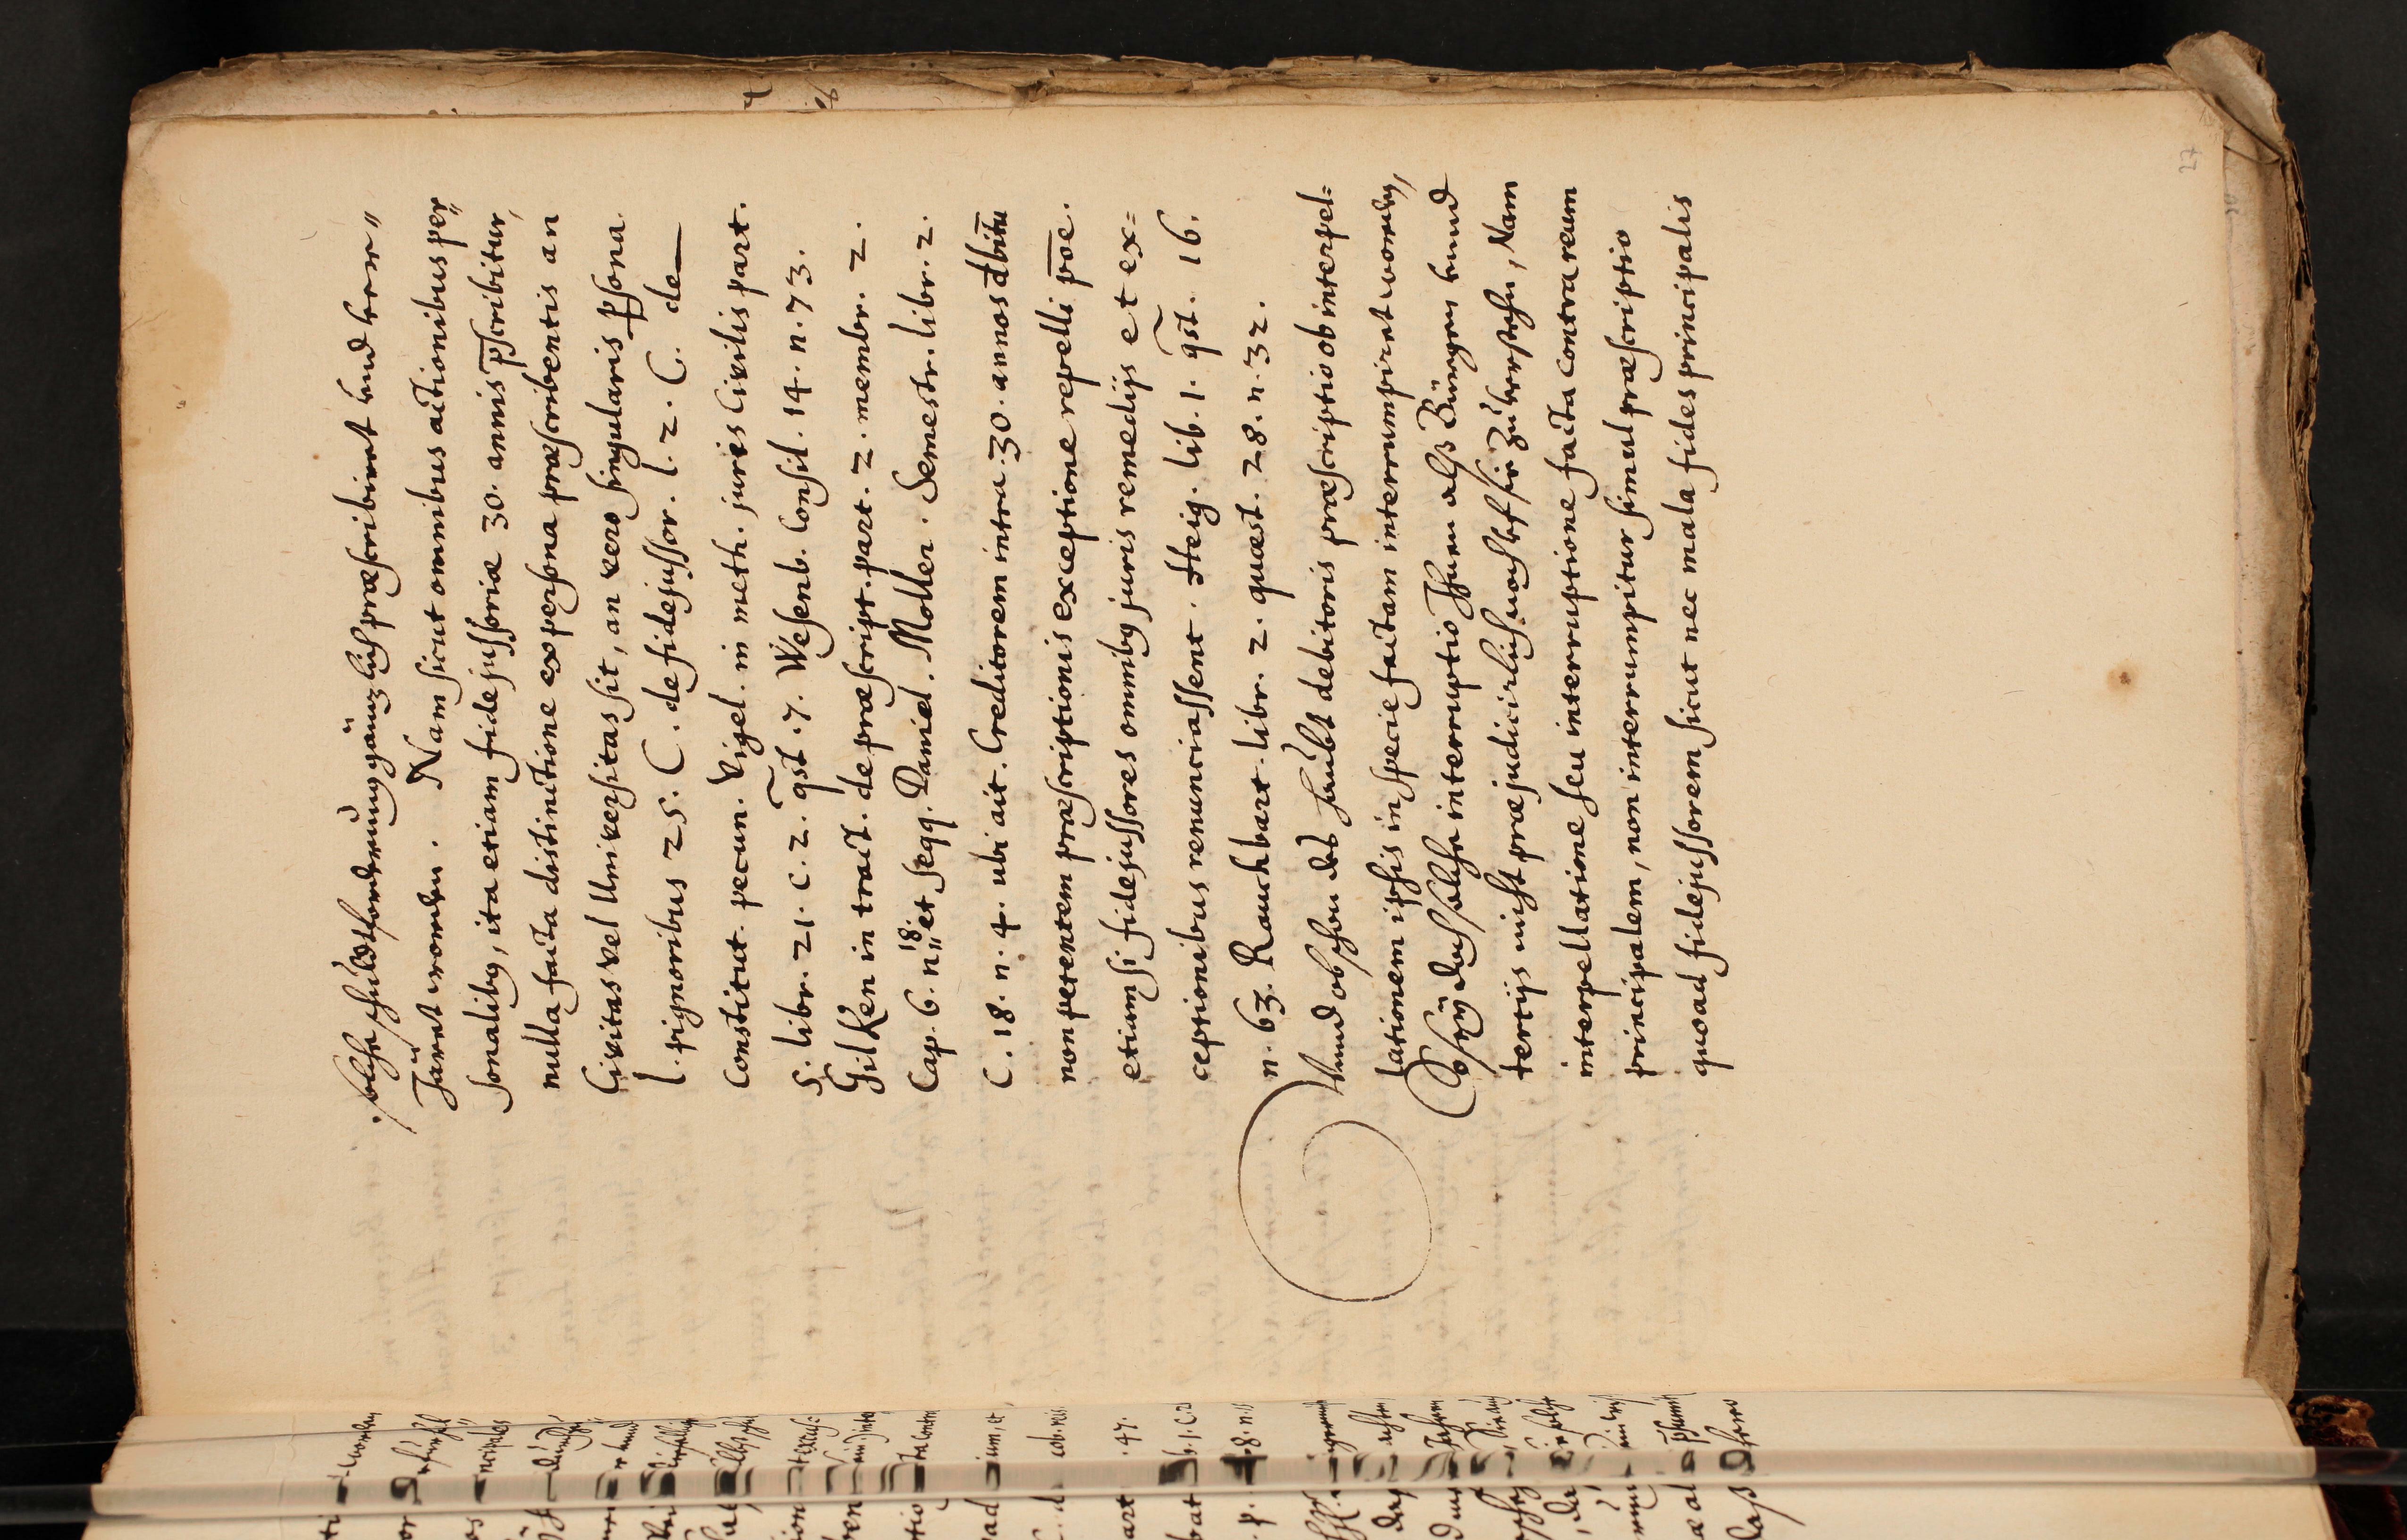 solche schuldtforderung gäntzlich præscribiret undt ver〃
Järet worden. Nam sicut omnibus actionibus per〃
sonalibꝫ, ita etiam fidejussoriæ 30. annis p̄scribitur,
nulla facta distinctione ex persona præscribentis an
Civitas vel Universitas sit, an vero singularis p̱sona
l. pignoribus 25. C. de fidejussor. l. 2. C. de
Constitut. pecun. Vigel. in meth. juris Civilis part.
5. libr. 21. c. 2. q̃st. 7. Wesenb. Consil. 14. n. 73.
Gilken in tract. de præscript. part. 2. membr. 2.
Cap. 6. n. 18 et seqq. Daniel. Moller. Semestr. libr. 2.
C. 18. n. 4. ubi ait. Creditorem intra 30. annos d̄bitū
non petentem præscriptionis exceptione repelli p̄o͞e.
etiamsi fidejussores omnibꝫ juris remedijs et ex=
ceptionibus renunciassent. Heig. lib. 1. q̃st. 16.
n. 63. Rauchbart. libr. 2. quæst. 28. n. 32.
Unnd obschon des haubt debitoris præscriptio ob interpel=
lationem ipsis in specie factam interrumpiret worden,
So seÿ doch solche interruptio Ihnen alß Bürgen unnd
tertijs nicht præjudicirlich noch auf sie zu verstehen, Nam
interpellatione seu interruptione facta contra reum
principalem, non interrumpitur simul præscriptio
quoad fidejussorem sicut nec mala fides principalis
27